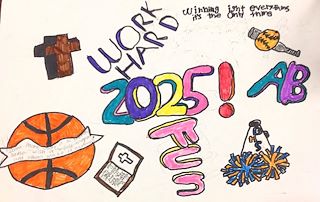 Winning isnt everything
it's the only thing
WORK
HARD
2025!
AB
Fun